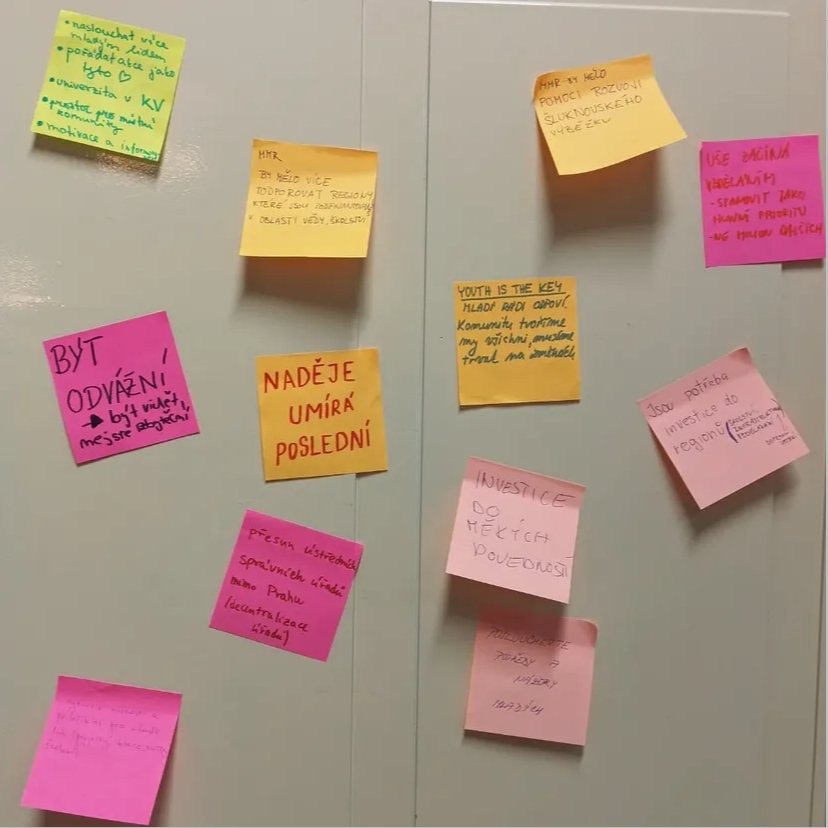 • naslouchat více
mladým lidem
• pořádat akce jako
tyto ♡
• univerzita v KV
• prostor pro místní
komunity
• motivace a
MMR
BY MĚLO VÍCE
PODPOROVAT REGIONY
KTERÉ JSOU
V OBLASTI VĚDY, ŠKOLSTVÍ
MMR BY MĚLO
POMOCI ROZVOJI
ŠLUKNOVSKÉHO
VÝBĚŽKU
VŠE ZAČÍNÁ
VZDĚLÁNÍM
- STANOVIT JAKO
HLAVNÍ PRIORITU
- NE MILION DALŠÍCH
BÝT
ODVÁŽNÍ
→ být vidět,
nejste zbyteční
NADĚJE
UMÍRÁ
POSLEDNÍ
YOUTH IS THE KEY
MLADÍ RÁDI ODPOVÍ
Komunitu tvoříme
my všichni, musíme
trvat na změnách
Jsou potřeba
investice do
regionů (ŠKOLSTVÍ,
INFRASTRUKTURA
INVESTICE
DO
MĚKÝCH
DOVEDNOSTÍ
přesun ústředních
správních úřadů
mimo Prahu
(decentralizace
úřadů)
POSLOUCHEJTE
POTŘEBY A
NÁZORY
MLADÝCH
pro mladé